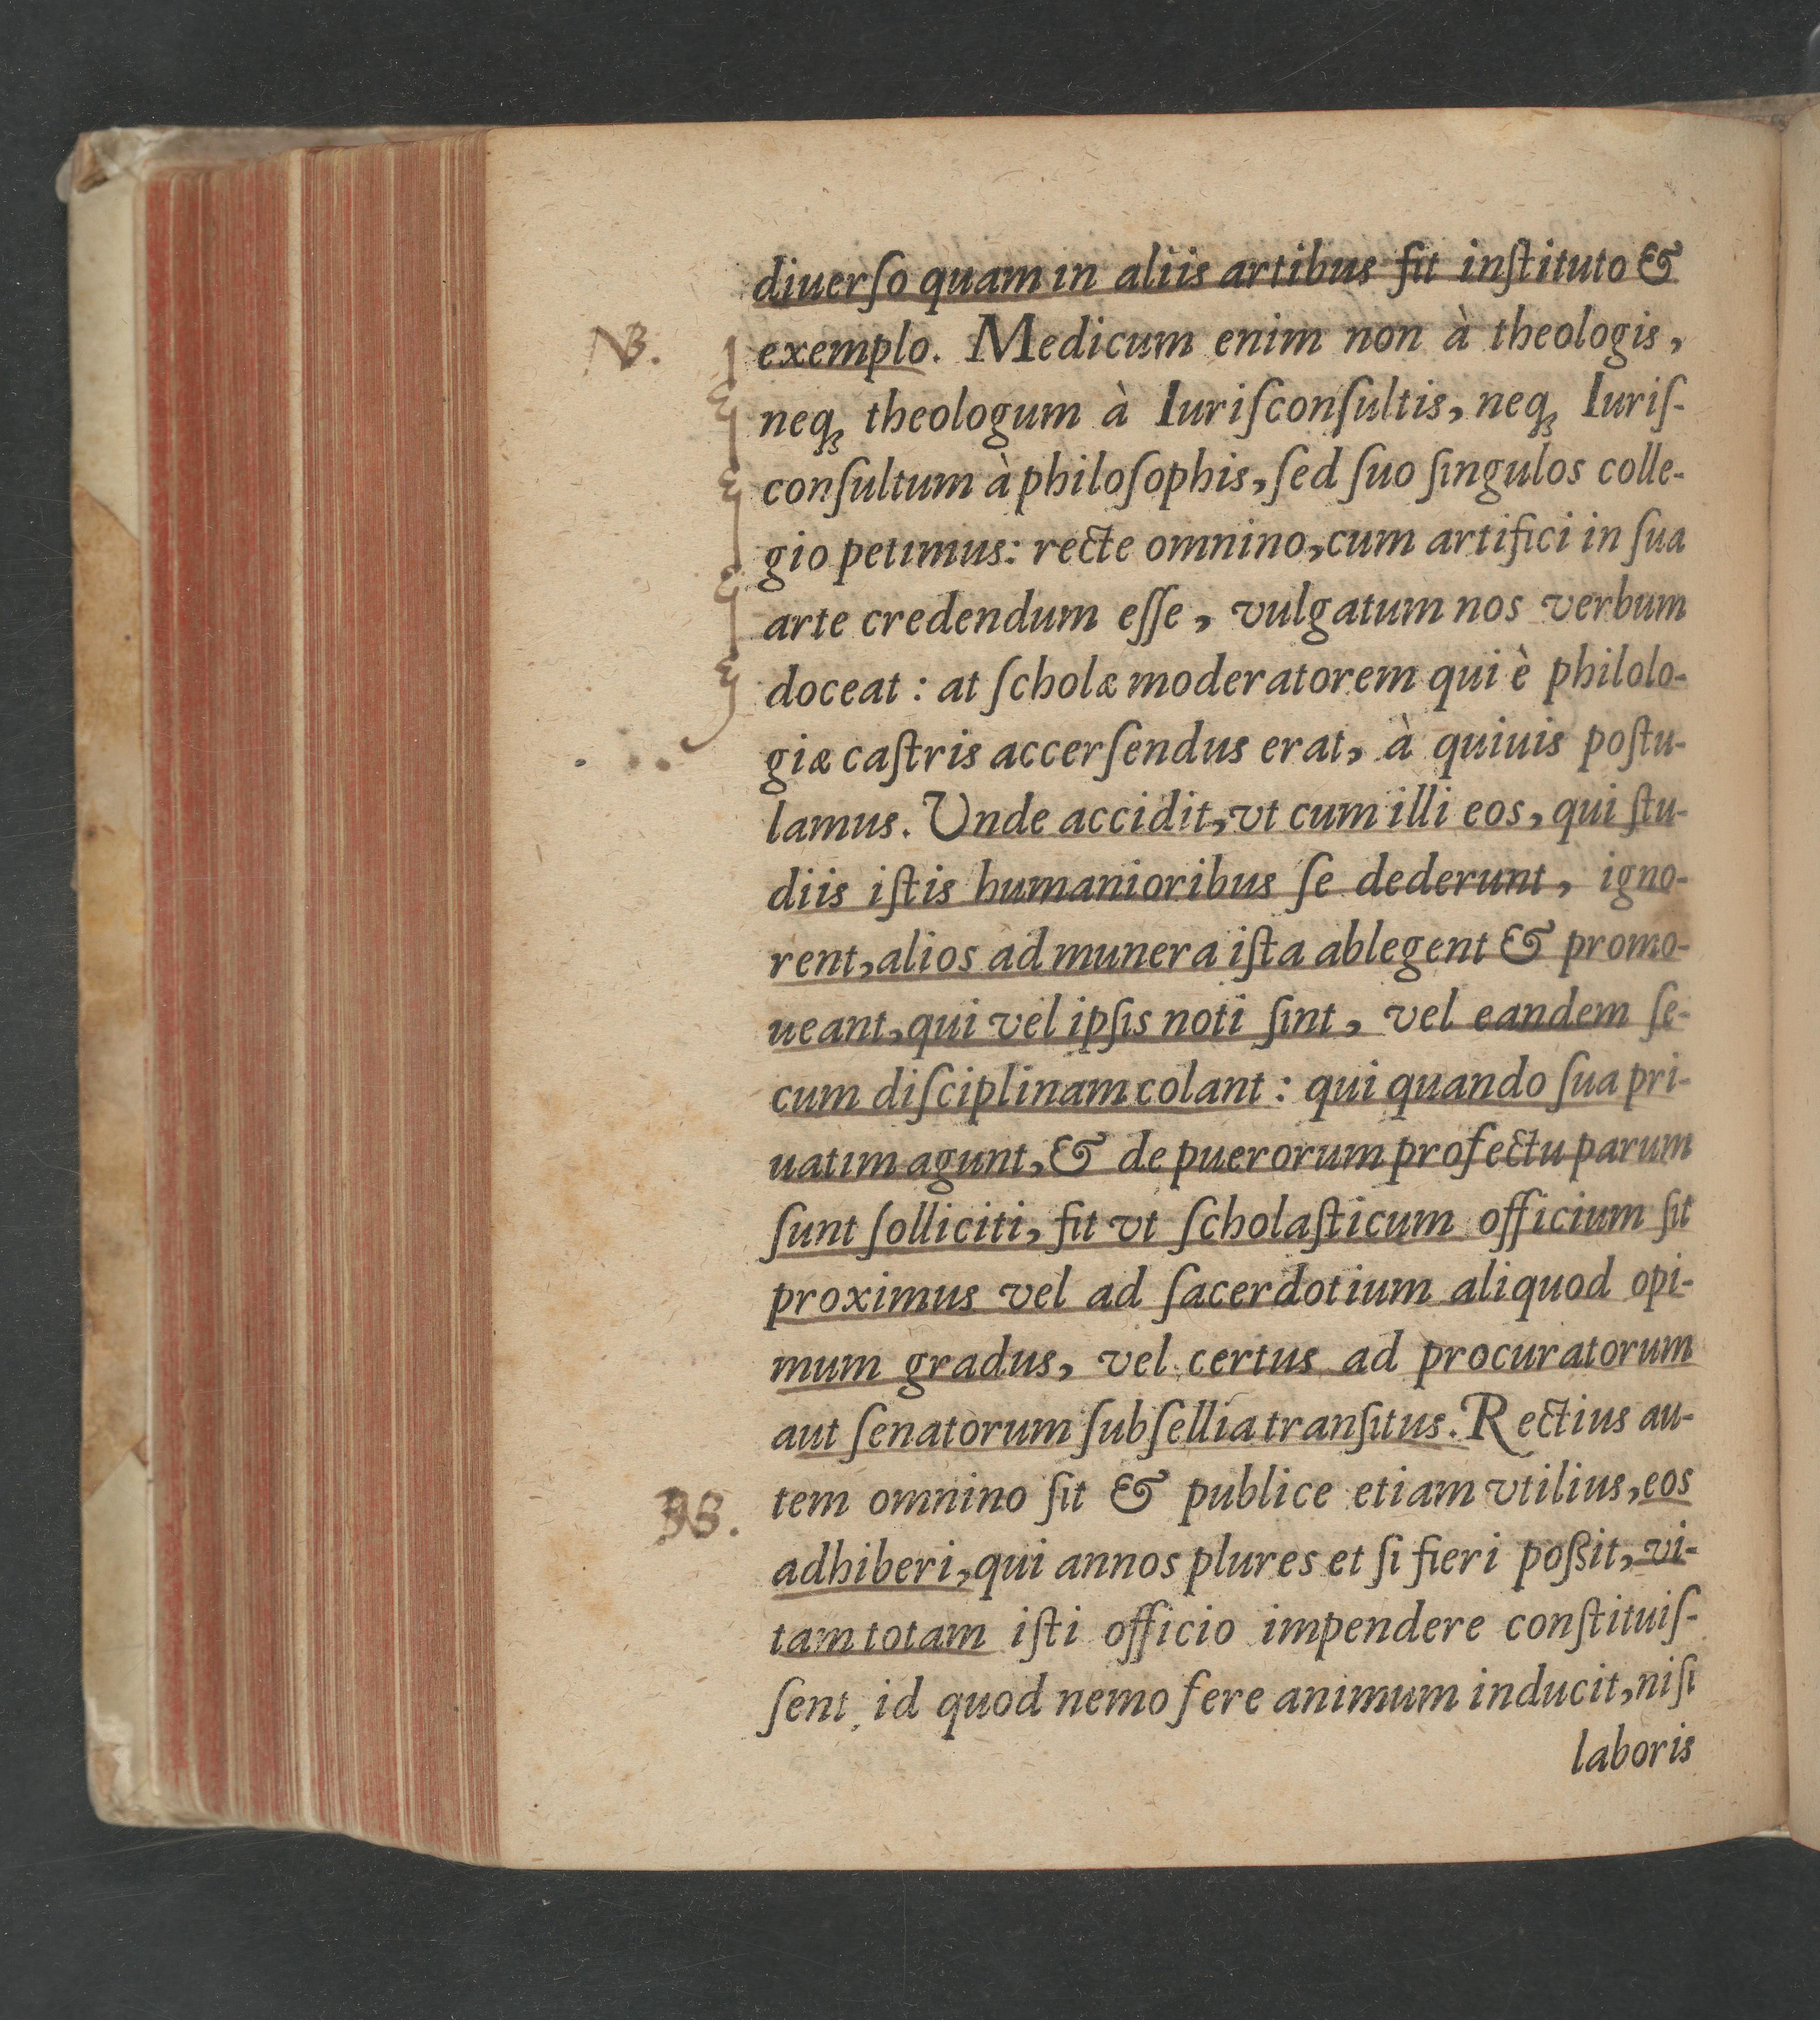 diuerſo quam in aliis artibus fit inſtituto &
NB.
exemplo. Medicum enim non à theologis,
neq; theologum à Iuriſconſultis, neq; Iuriſ-
conſultum à philoſophis, ſed ſuo ſingulos colle-
gio petimus: recte omnino, cum artifici in ſua
arte credendum eſſe, vulgatum nos verbum
doceat : at ſcholæ moderatorem qui è philolo-
giæ caſtris accerſendus erat, à quiuis poſtu-
lamus. Unde accidit, vt cum illi eos, qui ſtu-
diis iſtis humanioribus ſe dederunt, igno-
rent, alios ad munera iſta ablegent & promo-
ueant, qui vel ipſis noti ſint, vel eandem ſe-
cum diſciplinam colant : qui quando ſua pri-
uatim agunt, & de puerorum profectu parum
ſunt ſolliciti, fit vt ſcholaſticum officium ſit
proximus vel ad ſacerdotium aliquod opi-
mum gradus, vel certus ad procuratorum
aut ſenatorum ſubſellia tranſitus. Rectius au-
NB.
tem omnino ſit & publice etiam vtilius, eos
adhiberi, qui annos plures et ſi fieri poßit, vi-
tam totam iſti officio impendere conſtituiſ-
ſent, id quod nemo fere animum inducit, niſi
laboris